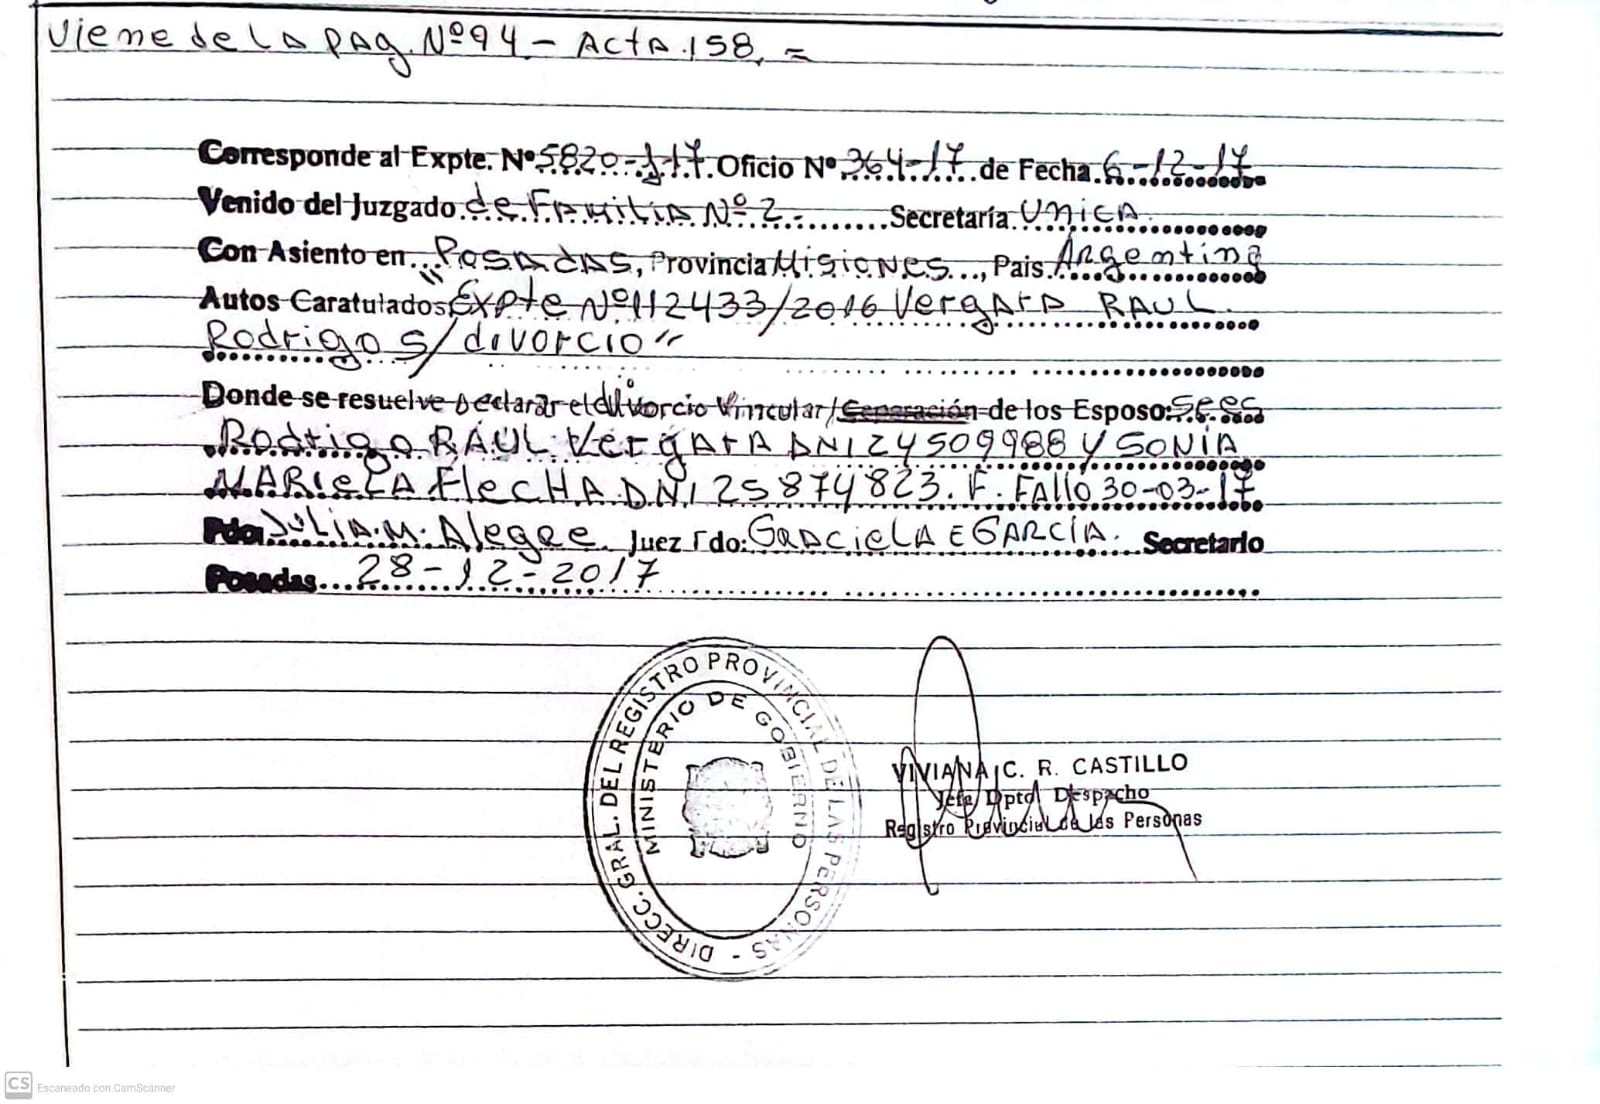 Viene de la pag. Nº 94 - Acta 158. =
Corresponde al Expte. Nº 5820-J-17. Oficio Nº 364-17 de Fecha 6-12-17
Venido del Juzgado de Familia Nº 2.- Secretaría Unica.
Con Asiento en Posadas, Provincia Misiones, Pais Argentina
Autos Caratulados "Expte Nº 112433/2016 Vergara RAUL
Rodrigo s/ divorcio"
Donde se resuelve Declarar el divorcio Vincular/Separación de los Esposo:
Rodrigo RAUL Vergara DNI 24509988 y SONIA
MARIELA FLECHA DNI 25874823. F. Fallo 30-03-17
Fdo: JULIA. M. Alegre. Juez Fdo: GRACIELA E GARCÍA. Secretario
Posadas 28-12-2017
DIRECC. GRAL. DEL REGISTRO PROVINCIAL DE LAS PERSONAS -
MINISTERIO DE GOBIERNO
VIVIANA C. R. CASTILLO
Jefa Dpto Despacho
Registro Provincial de las Personas
CS Escaneado con CamScanner